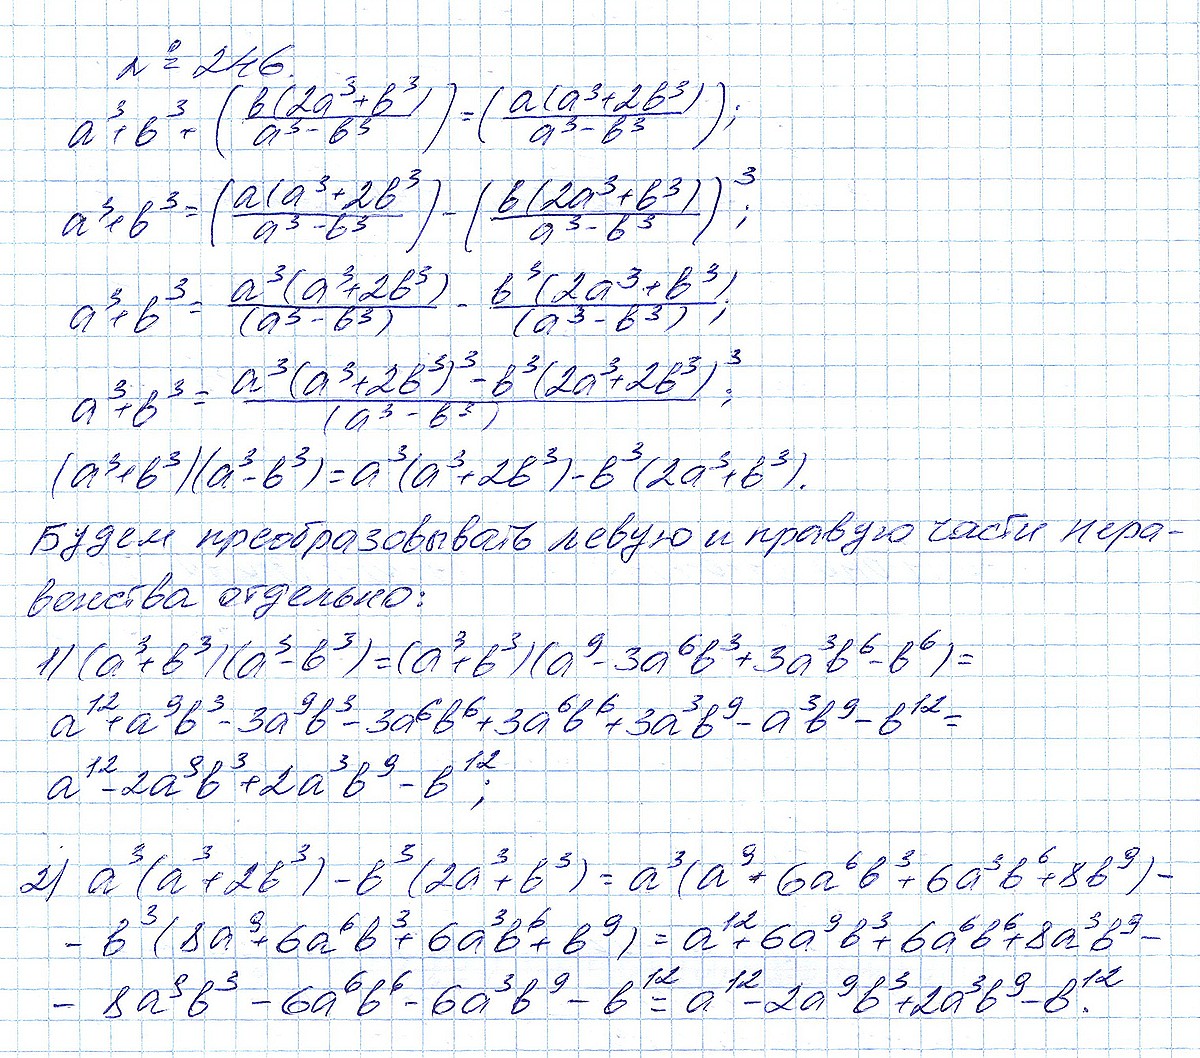 № 246.
a³+b³+(b(2a³+b³)/a³-b³)=(a(a³+2b³)/a³-b³);
a³+b³=(a(a³+2b³/a³-b³)-(b(2a³+b³)/a³-b³)³;
a³+b³=a³(a³+2b³)/(a³-b³)-b³(2a³+b³)/(a³-b³);
a³+b³=a³(a³+2b³)³-b³(2a³+2b³)³/(a³-b³);
(a³+b³)(a³-b³)=a³(a³+2b³)-b³(2a³+b³).
Будем преобразовывать левую и правую части нера-
венства отдельно:
1) (a³+b³)(a³-b³)=(a³+b³)(a⁹-3a⁶b³+3a³b⁶-b⁶)=
a¹²+a⁹b³-3a⁹b³-3a⁶b⁶+3a⁶b⁶+3a³b⁹-a³b⁹-b¹²=
a¹²-2a⁹b³+2a³b⁹-b¹²;
2) a³(a³+2b³)-b³(2a³+b³)=a³(a⁹+6a⁶b³+6a³b⁶+8b⁹)-
-b³(8a⁹+6a⁶b³+6a³b⁶+b⁹)=a¹²+6a⁹b³+6a⁶b⁶+8a³b⁹-
-8a⁹b³-6a⁶b⁶-6a³b⁹-b¹²=a¹²-2a⁹b³+2a³b⁹-b¹².